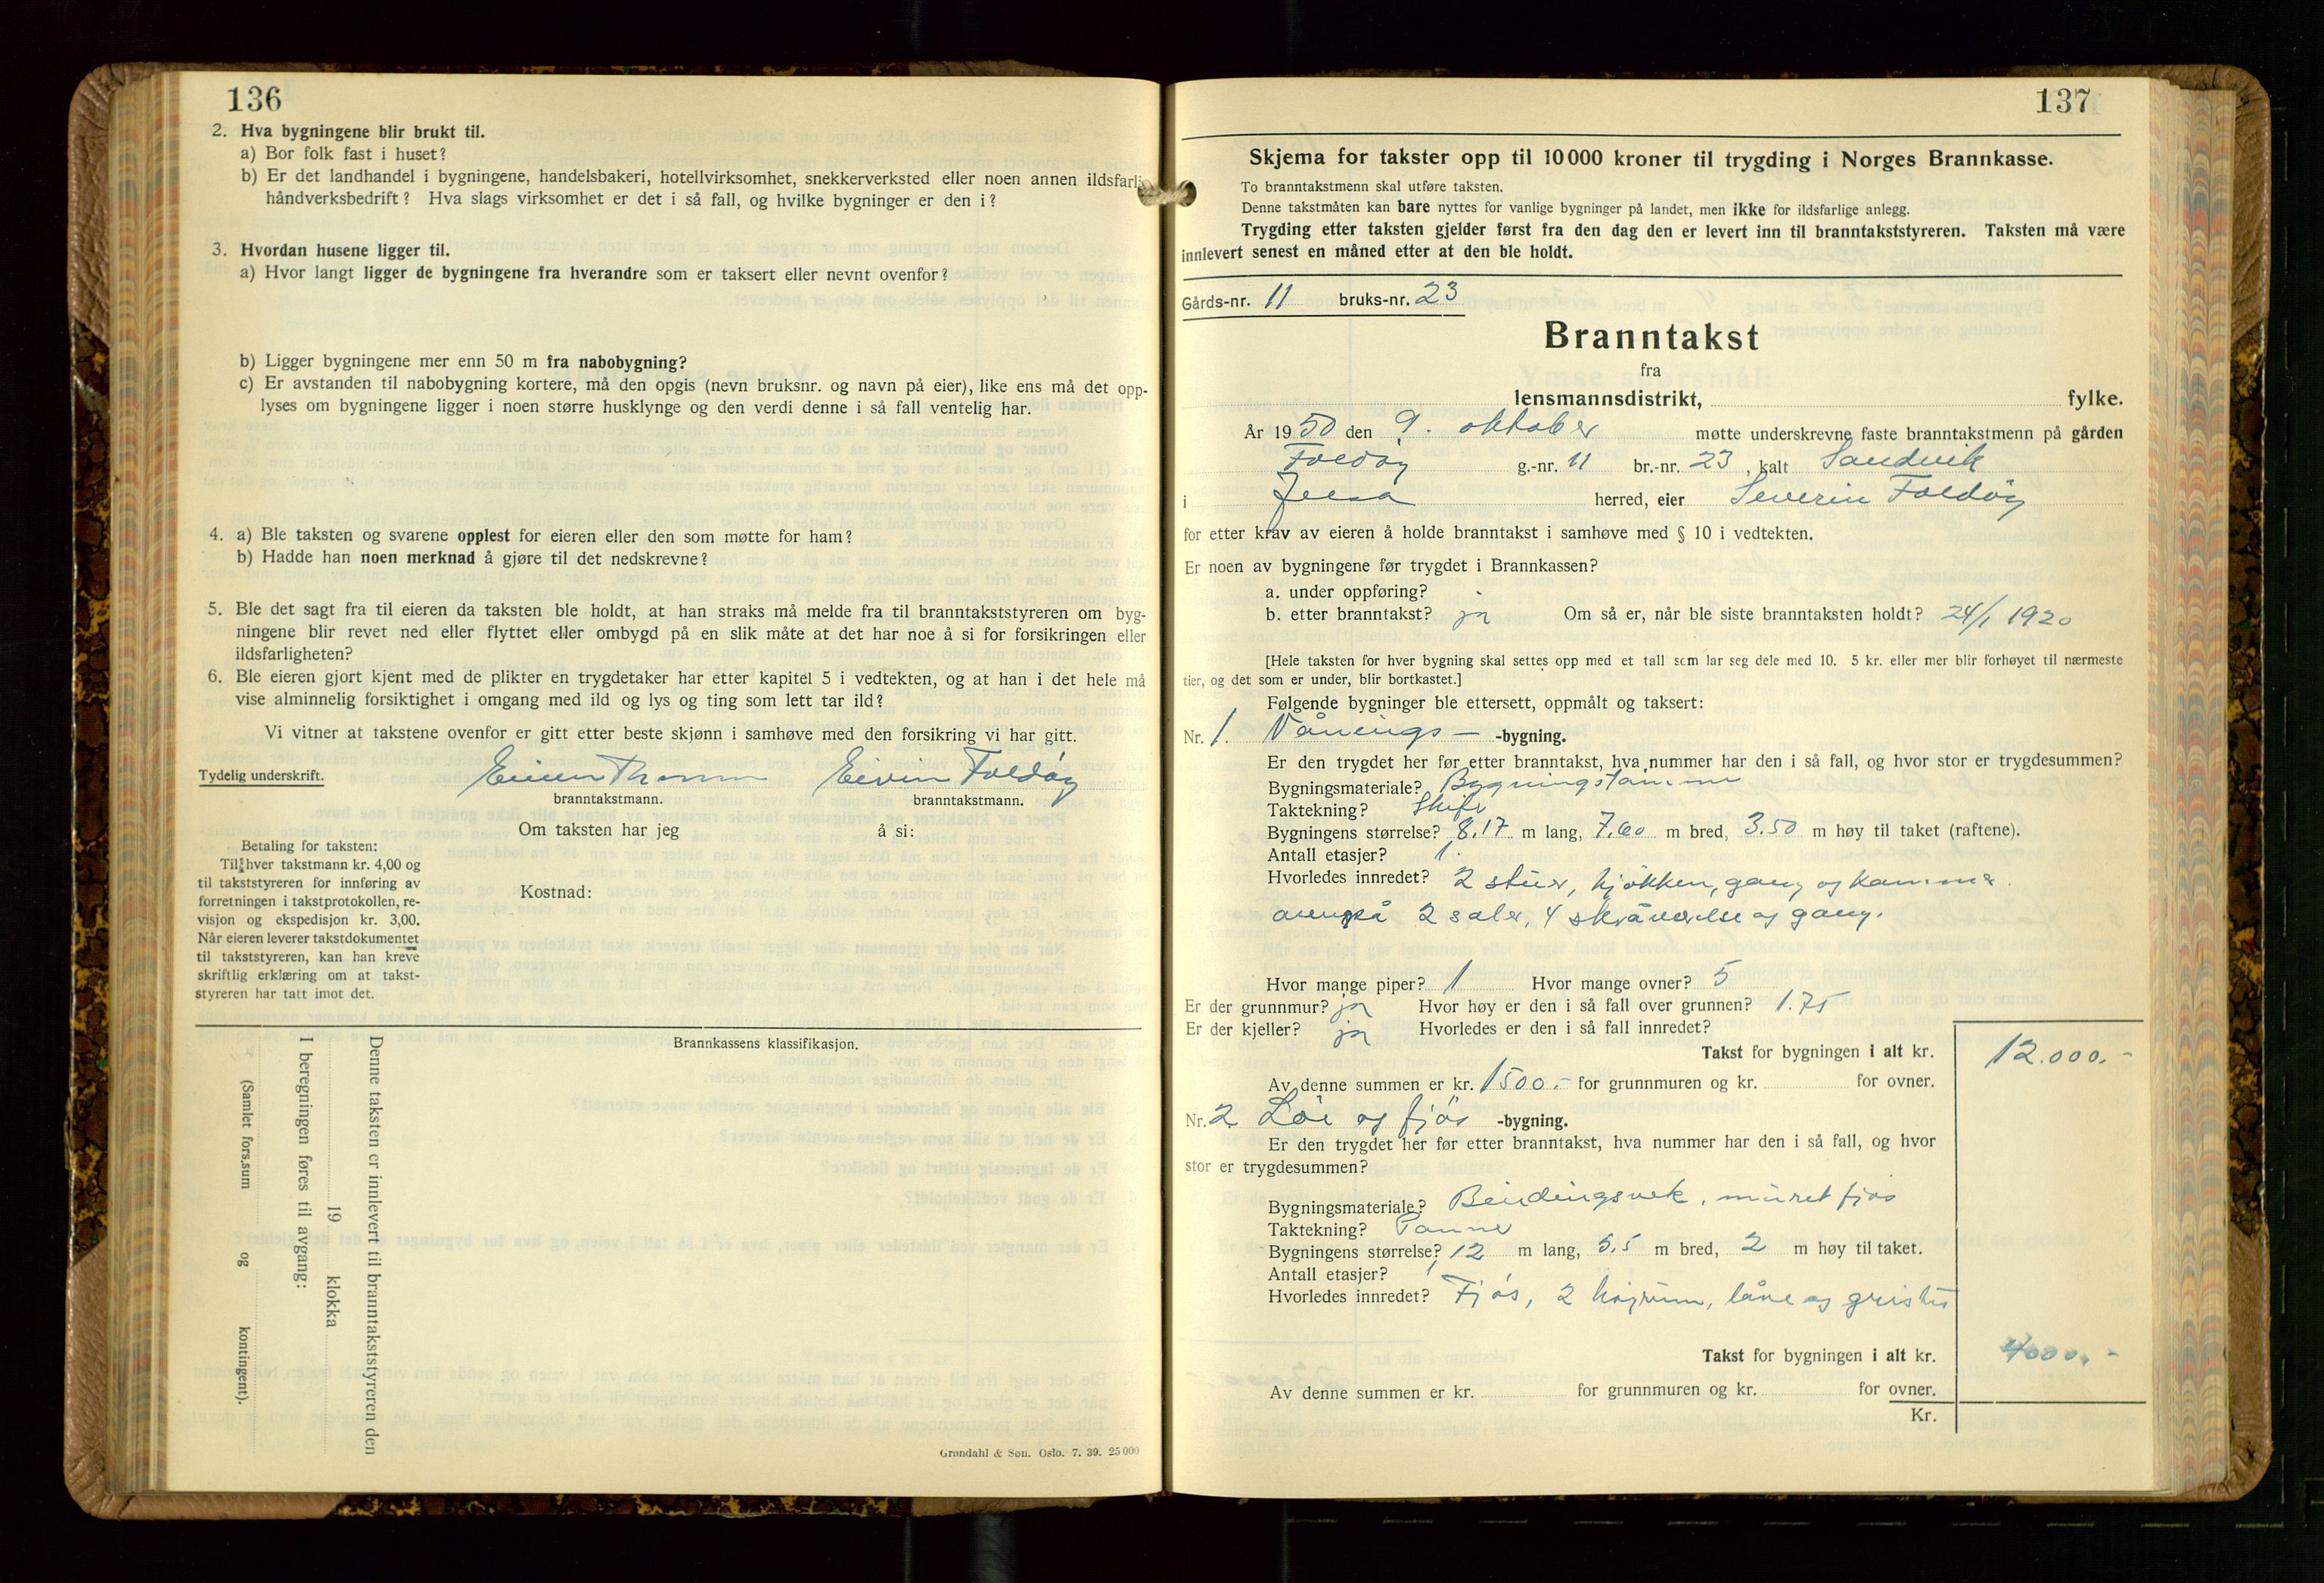 136
2. Hva bygningene blir brukt til.
a) Bor folk fast i huset?
b) Er det landhandel i bygningene, handelsbakeri, hotellvirksomhet, snekkerverksted eller noen annen ildsfarlig
håndverksbedrift? Hva slags virksomhet er det i så fall, og hvilke bygninger er den i?
3. Hvordan husene ligger til.
a) Hvor langt ligger de bygningene fra hverandre som er taksert eller nevnt ovenfor?
b) Ligger bygningene mer enn 50 m fra nabobygning?
c) Er avstanden til nabobygning kortere, må den opgis (nevn bruksnr. og navn på eier), like ens må det opp-
lyses om bygningene ligger i noen større husklynge og den verdi denne i så fall ventelig har.
4. a) Ble taksten og svarene opplest for eieren eller den som møtte for ham?
b) Hadde han noen merknad å gjøre til det nedskrevne?
5. Ble det sagt fra til eieren da taksten ble holdt, at han straks må melde fra til branntakststyreren om byg-
ningene blir revet ned eller flyttet eller ombygd på en slik måte at det har noe å si for forsikringen eller
ildsfarligheten?
6. Ble eieren gjort kjent med de plikter en trygdetaker har etter kapitel 5 i vedtekten, og at han i det hele må
vise alminnelig forsiktighet i omgang med ild og lys og ting som lett tar ild?
Vi vitner at takstene ovenfor er gitt etter beste skjønn i samhøve med den forsikring vi har gitt.
Tydelig underskrift. Eivin Foldøy
branntakstmann. branntakstmann.
Om taksten har jeg å si:
Betaling for taksten:
Til hver takstmann kr. 4,00 og
til takststyreren for innføring av
forretningen i takstprotokollen, re-
visjon og ekspedisjon kr. 3,00.
Når eieren leverer takstdokumentet
til takststyreren, kan han kreve
skriftlig erklæring om at takst-
styreren har tatt imot det.
Kostnad:
Brannkassens klassifikasjon.
Denne taksten er innlevert til branntakststyreren den
19 klokka
I beregningen føres til avgang:
(Samlet fors.sum og kontingent).
Grøndahl & Søn. Oslo. 7. 39. 25 000
137
Skjema for takster opp til 10 000 kroner til trygding i Norges Brannkasse.
To branntakstmenn skal utføre taksten.
Denne takstmåten kan bare nyttes for vanlige bygninger på landet, men ikke for ildsfarlige anlegg.
Trygding etter taksten gjelder først fra den dag den er levert inn til branntakststyreren. Taksten må være
innlevert senest en måned etter at den ble holdt.
Gårds-nr. 11 bruks-nr. 23
Branntakst
fra
lensmannsdistrikt, fylke.
År 1950 den 9. oktober møtte underskrevne faste branntakstmenn på gården
Foldøy g.-nr. 11 br.-nr. 23, kalt Sandvik
i Jelsa herred, eier Severin Foldøy
for etter krav av eieren å holde branntakst i samhøve med § 10 i vedtekten.
Er noen av bygningene før trygdet i Brannkassen?
a. under oppføring?
b. etter branntakst? ja Om så er, når ble siste branntaksten holdt? 24/1 1920
[Hele taksten for hver bygning skal settes opp med et tall som lar seg dele med 10. 5 kr. eller mer blir forhøyet til nærmeste
tier, og det som er under, blir bortkastet.]
Følgende bygninger ble ettersett, oppmålt og taksert:
Nr. 1. Vånings- -bygning.
Er den trygdet her før etter branntakst, hva nummer har den i så fall, og hvor stor er trygdesummen?
Bygningsmateriale? Bygningstømmer
Taktekning? Skifer
Bygningens størrelse? 8.17 m lang, 7.60 m bred, 3.50 m høy til taket (raftene).
Antall etasjer? 1.
Hvorledes innredet? 2 stuer, kjøkken, gang og kammer.
ovenpå 2 saler, 4 skråværelse og gang.
Hvor mange piper? 1 Hvor mange ovner? 5
Er der grunnmur? ja Hvor høy er den i så fall over grunnen? 1.75
Er der kjeller? ja Hvorledes er den i så fall innredet?
Takst for bygningen i alt kr. 12.000.-
Av denne summen er kr. 1500.- for grunnmuren og kr. for ovner.
Nr. 2 Løe og fjøs -bygning.
Er den trygdet her før etter branntakst, hva nummer har den i så fall, og hvor
stor er trygdesummen?
Bygningsmateriale? Bindingsverk, muret fjøs
Taktekning? Panner
Bygningens størrelse? 12 m lang, 5,5 m bred, 2 m høy til taket.
Antall etasjer? 1
Hvorledes innredet? Fjøs, 2 høyrum, låve og grishus
Takst for bygningen i alt kr. 4000.-
Av denne summen er kr. for grunnmuren og kr. for ovner.
Kr.